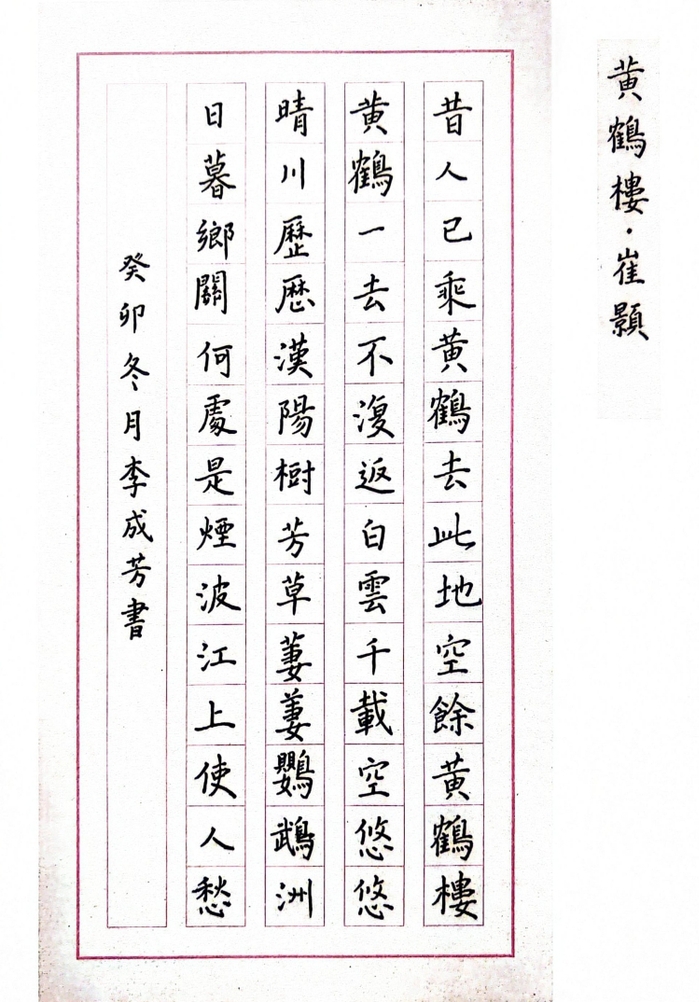 黄鶴樓·崔顥
昔人已乘黄鶴去此地空餘黄鶴樓
黄鶴一去不復返白雲千載空悠悠
晴川歷歷漢陽樹芳草萋萋鸚鵡洲
日暮鄉關何處是煙波江上使人愁
癸卯冬月李成芳書